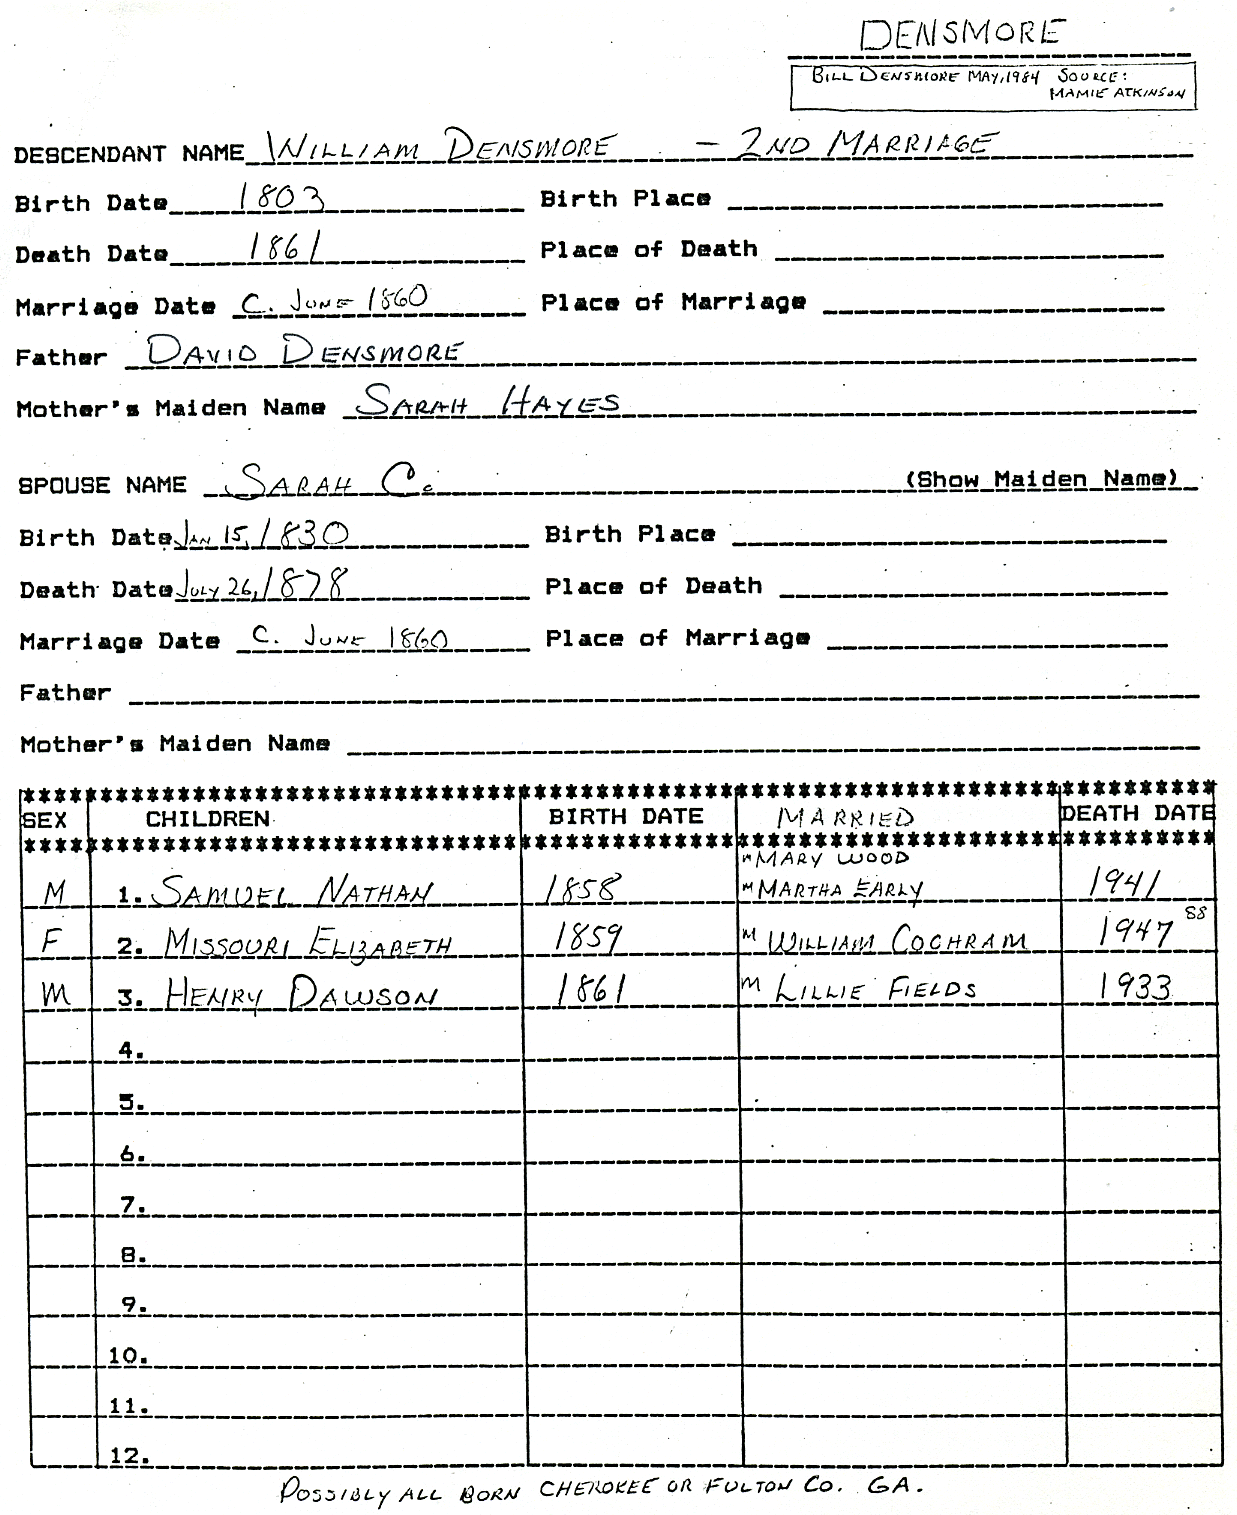 DENSMORE
BILL DENSMORE MAY, 1984 SOURCE:
MAMIE ATKINSON
DESCENDANT NAME WILLIAM DENSMORE - 2ND MARRIAGE
Birth Date 1803 Birth Place
Death Date 1861 Place of Death
Marriage Date C. JUNE 1860 Place of Marriage
Father DAVID DENSMORE
Mother's Maiden Name SARAH HAYES
SPOUSE NAME SARAH C. (Show Maiden Name)
Birth Date JAN 15, 1830 Birth Place
Death Date JULY 26, 1878 Place of Death
Marriage Date C. JUNE 1860 Place of Marriage
Father
Mother's Maiden Name
SEX CHILDREN BIRTH DATE MARRIED DEATH DATE
M MARY WOOD
M 1. SAMUEL NATHAN 1858 M MARTHA EARLY 1941
F 2. MISSOURI ELIZABETH 1859 M WILLIAM COCHRAM 1947 88
M 3. HENRY DAWSON 1861 M LILLIE FIELDS 1933
4.
5.
6.
7.
8.
9.
10.
11.
12.
POSSIBLY ALL BORN CHEROKEE OR FULTON CO. GA.